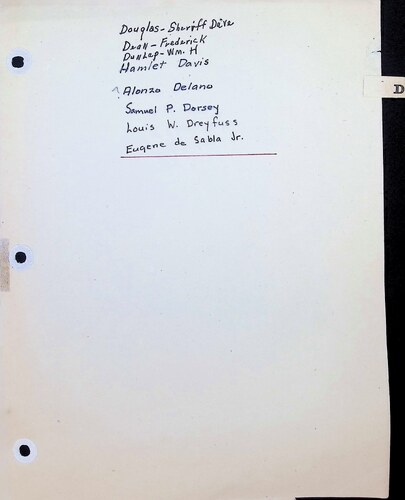 Douglas - Sheriff Dave
Dean - Frederick
Dunlap - Wm. H
Hamlet Davis
? Alonzo Delano
Samuel P. Dorsey
Louis W. Dreyfuss
Eugene de Sabla Jr.
D